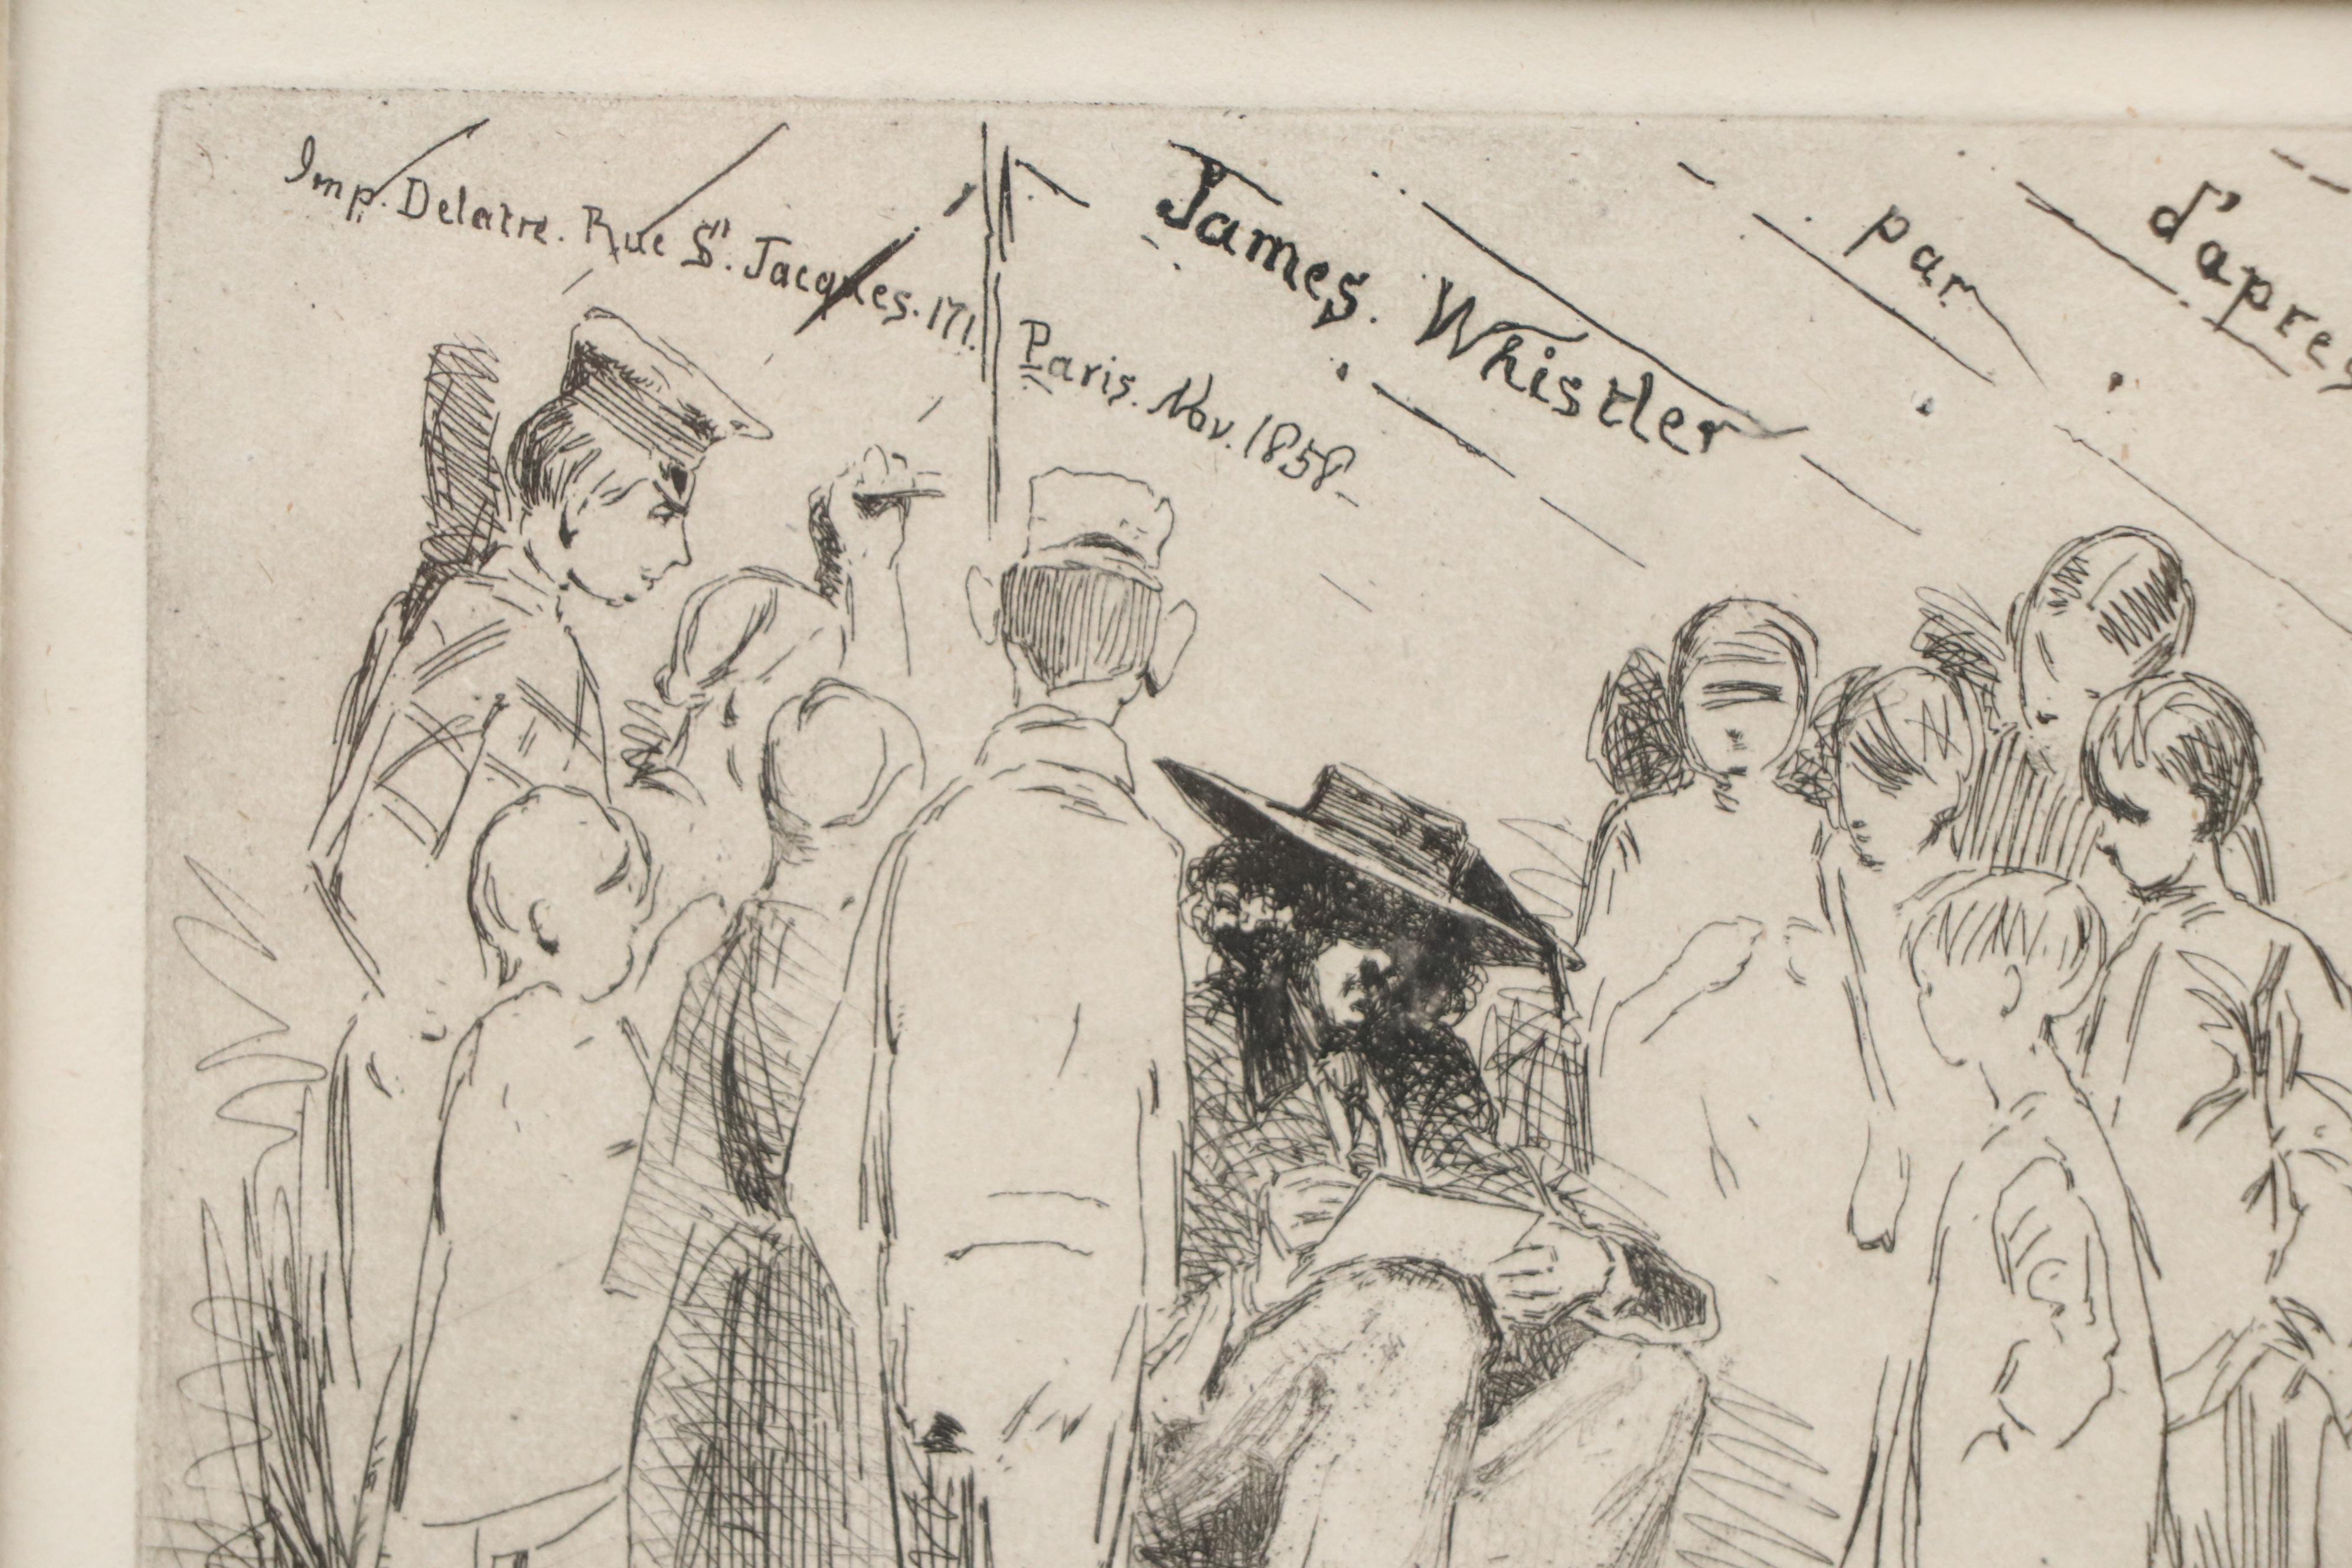 Imp. Delatre. Rue St. Jacques. 171.
Paris. Nov. 1858.
James. Whistler
par
d'apres